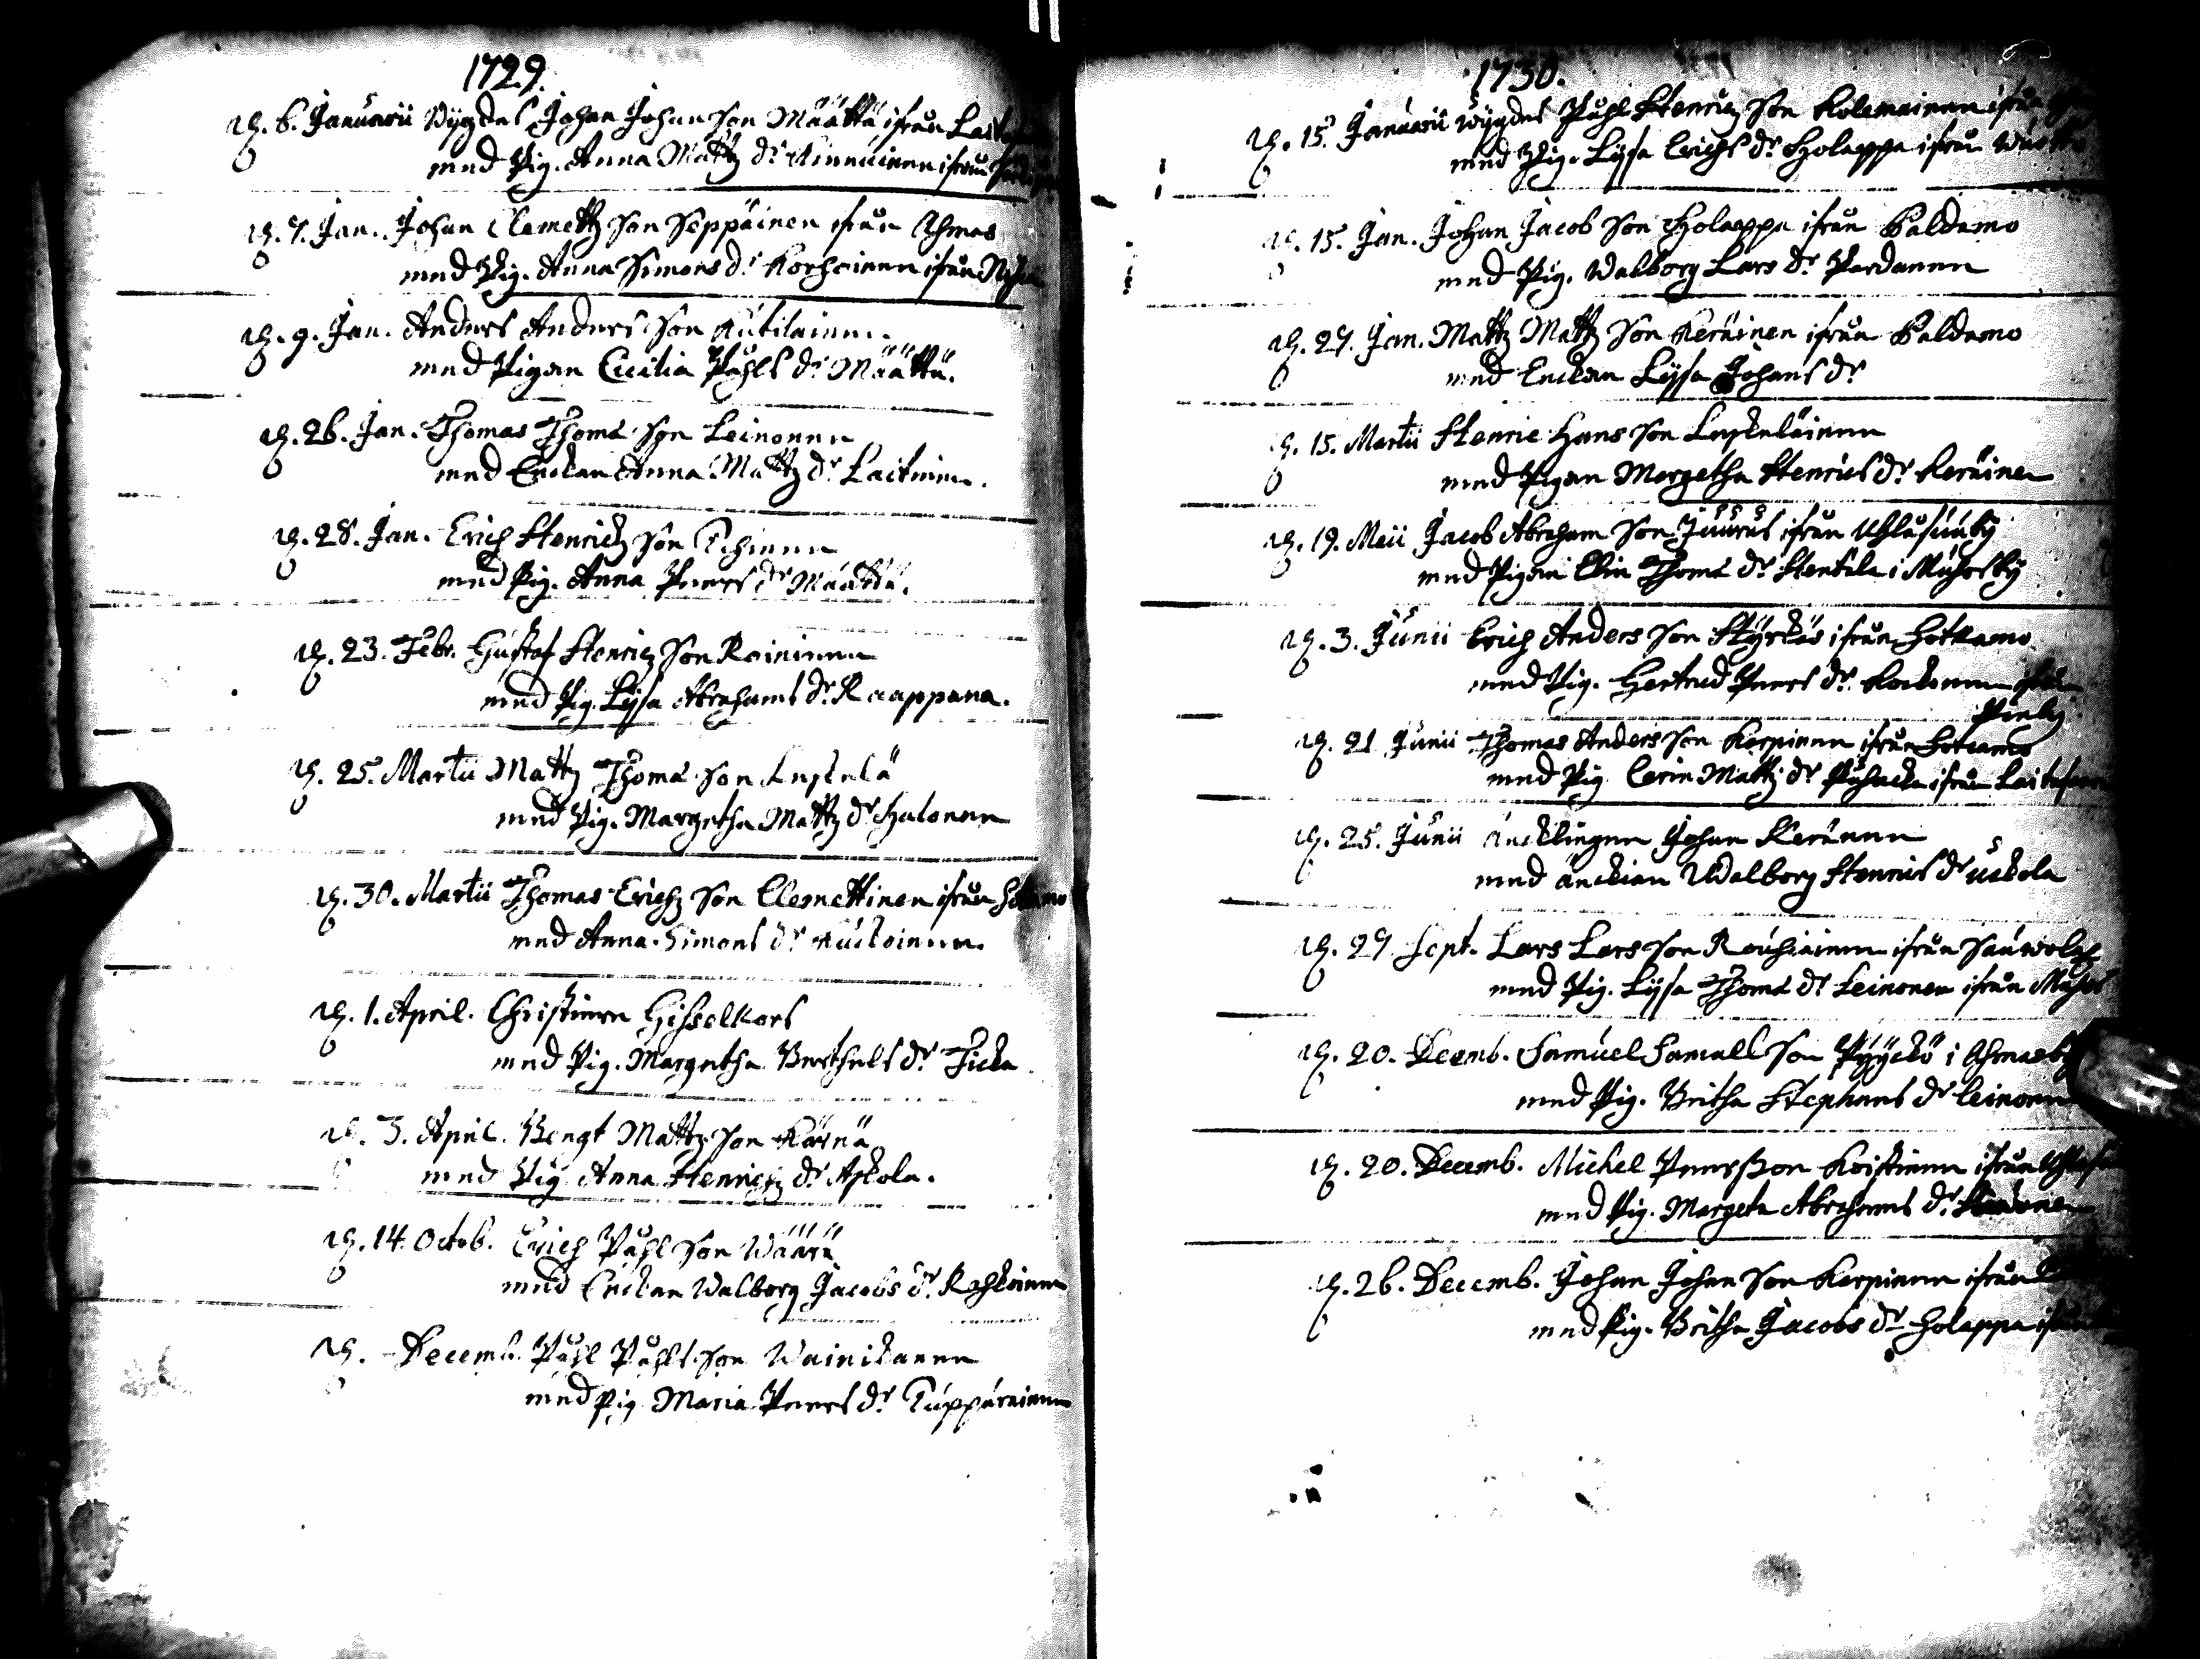 1729.
d. 6. Januarii Wygdes Johan Johan Son Määttä ifrån
med Pig. Anna Mattz dr Kinnuinen ifrån
d. 7. Jan. Johan Clemettz Son Seppäinen ifrån Ahmas
med Pig. Anna Simons dr Korhoinen ifrån
d. 9. Jan. Anders Anders Son Kutilainen.
med Pigan Cicilia Påhls dr Määttä.
d. 26. Jan. Thomas Thoms Son Leinonen
med Enckan Anna Mattz dr Laitinen.
d. 28. Jan. Erich Henrichz Son
med Pig. Anna Peers dr Määttä.
d. 23. Febr. Gustaf Henricz Son Raininen
med Pig. Lysa Abrahams dr Raappana.
d. 25. Martii Mattz Thoms Son Leskelä
med Pig. Margetha Mattz dr Halonen
d. 30. Martii Thomas Erichz Son Clemettinen ifrån
med Anna Simons dr
d. 1. April. Christiern Gisselkors
med Pig. Margetha Berthels dr Ticka
d. 3. April. Bengt Mattz Son Kärnä
med Pig Anna Henrichz dr Askola.
d. 14. Octob. Erich Påhl Son Wäärä
med Enckan Walborg Jacobs dr Rahkoinen
d. - Decemb. Påhl Påhls Son Wainikanen
med Pig Maria Peers dr Tuppurainen
1730.
d. 15. Januarii Wygdes Påhl Henricz Son Kolemainen ifrån
med Pig. Lysa Erichs dr Holappa ifrån
d. 15. Jan. Johan Jacob Son Holappa ifrån Paldamo
med Pig. Walborg Lars dr Pardanen
d. 27. Jan. Mattz Mattz Son Keräinen ifrån Paldamo
med Enckan Lysa Johans dr
d. 15. Martii Henric Hans Son Leskeläinen
med Pigan Margetha Henrics dr Keräinen
d. 19. Maii Jacob Abraham Son Juurus ifrån Uhlåsuuby
med Pigan Elin Thoms dr Hentilä i Muhosby
d. 3. Junii Erich Anders Son Hyrkäs ifrån Sotkamo
med Pig. Gertrud Peers dr. Kockonen ifrån
Pieliz
d. 21 Junii Thomas Anders Son Karpinen ifrån Sotcamo
med Pig Carin Mattz dr Puhacka ifrån
d. 25. Junii äncklingen Johan Keränen
med änckian Walborg Henrics dr uckola
d. 27 Sept. Lars Lars Son Rouhiainen ifrån Sauwolax
med Pig. Lysa Thoms dr Leinonen ifrån Muhos
d. 20. Decemb. Samuel Samuels Son Pyyckö i Ahmasby
med Pig. Britha Stephans dr Leinonen
d. 20. Decemb. Michel Peersson Koistinen ifrån
med Pig. Margeta Abrahams dr
d. 26. Decemb. Johan Johan Son Karpinen ifrån
med Pig. Britha Jacobs dr Holappa ifrån